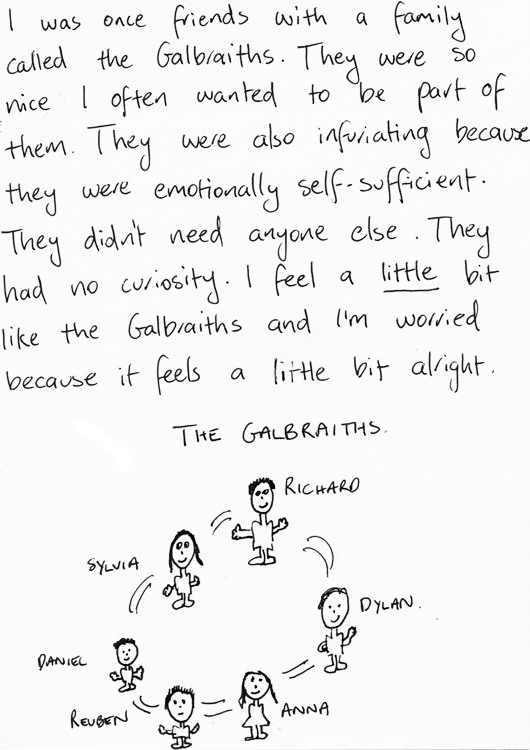 I was once friends with a family
called the Galbraiths. They were so
nice I often wanted to be part of
them. They were also infuriating because
they were emotionally self-sufficient.
They didn't need anyone else. They
had no curiosity. I feel a little bit
like the Galbraiths and I'm worried
because it feels a little bit alright.
THE GALBRAITHS.
RICHARD
SYLVIA
DYLAN.
DANIEL
REUBEN
ANNA